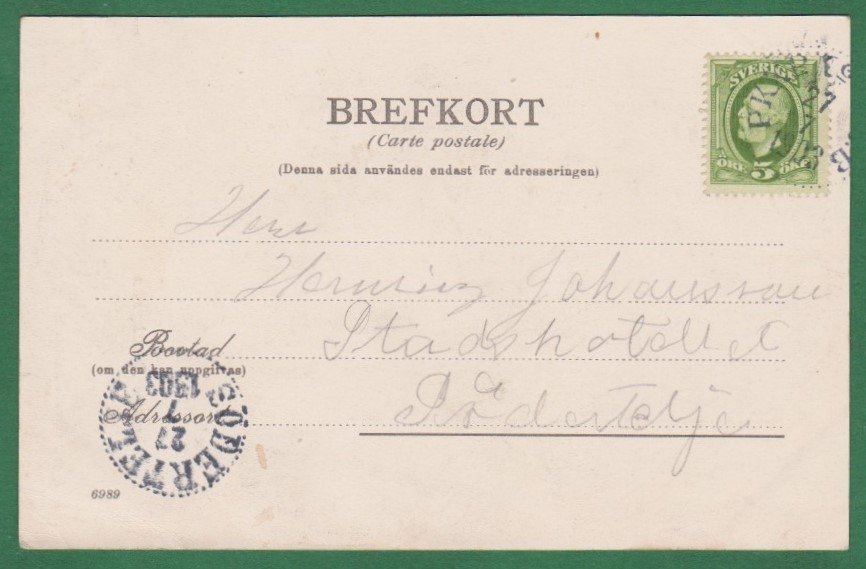 BREFKORT
(Carte postale)
(Denna sida användes endast för adresseringen)
SVERIGE
ÖRE 5 ÖRE
PK
Herr
Henning Johansson
Stadshotellet
Södertelje
Bostad
(om den kan uppgifvas)
Adressort
SÖDERTELJE
27 7 1903
6989